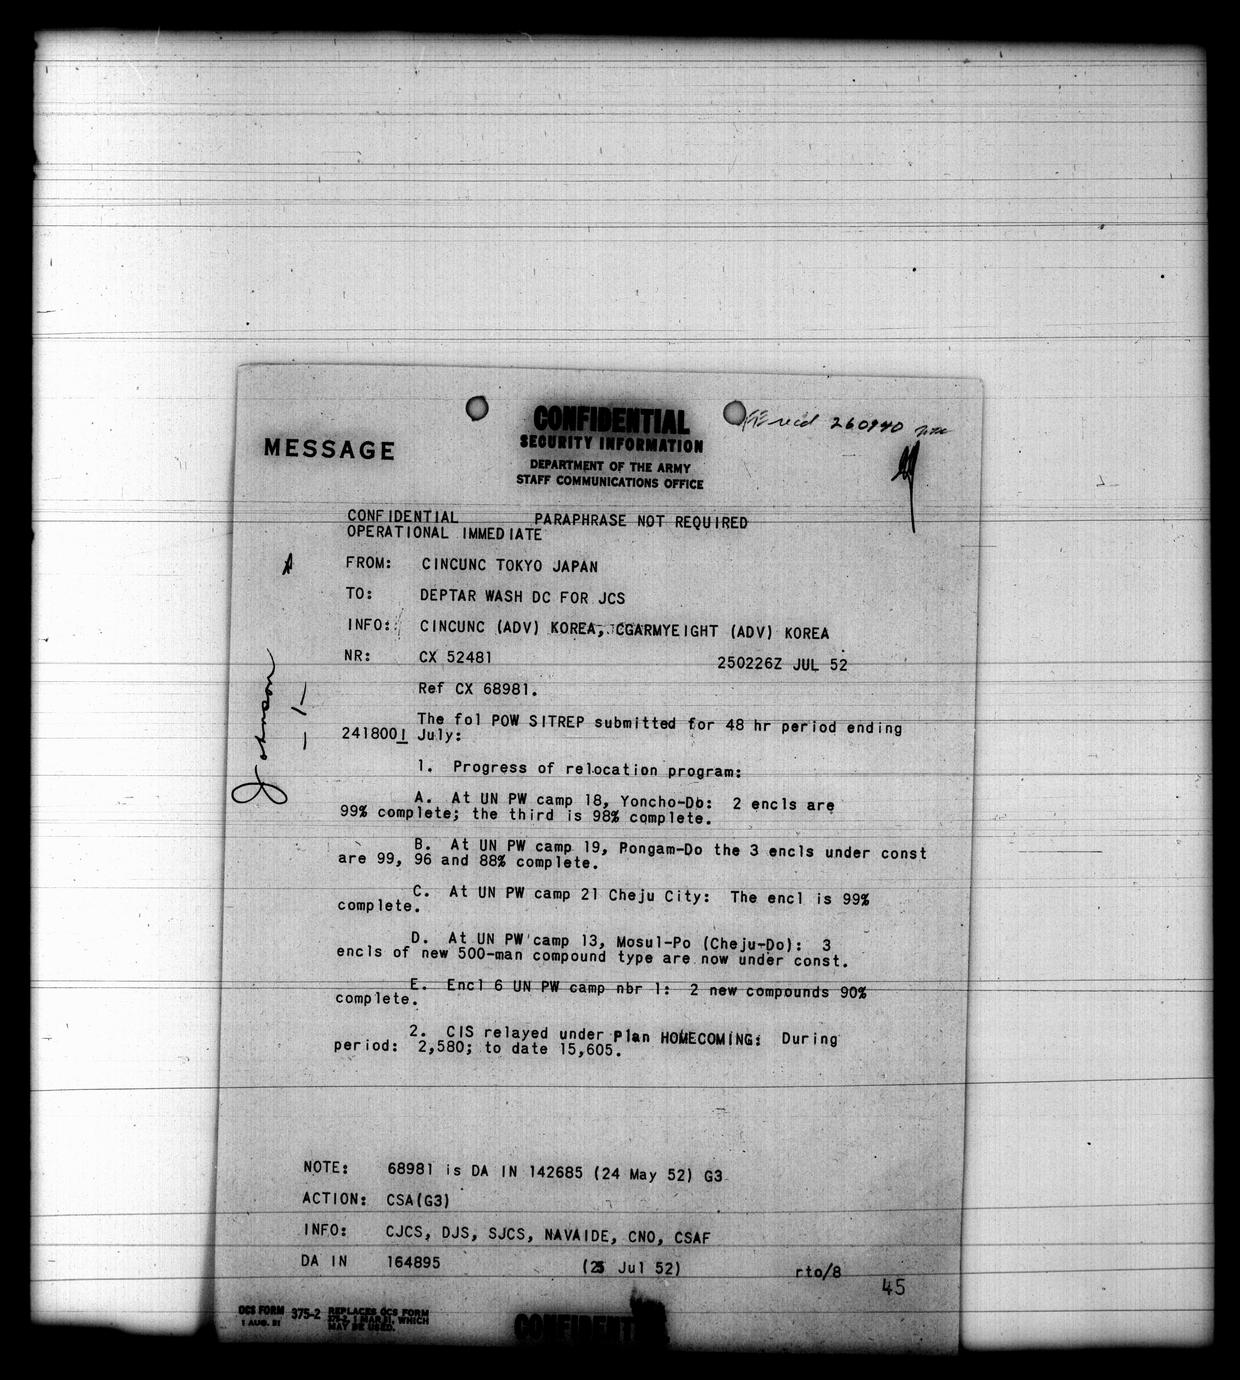 CONFIDENTIAL
SECURITY INFORMATION
MESSAGE
DEPARTMENT OF THE ARMY
STAFF COMMUNICATIONS OFFICE
recd 260940
CONFIDENTIAL PARAPHRASE NOT REQUIRED
OPERATIONAL IMMEDIATE
FROM: CINCUNC TOKYO JAPAN
TO: DEPTAR WASH DC FOR JCS
INFO: CINCUNC (ADV) KOREA, CGARMYEIGHT (ADV) KOREA
NR: CX 52481 250226Z JUL 52
Ref CX 68981.
The fol POW SITREP submitted for 48 hr period ending
241800I July:
Johnson
-1-
1. Progress of relocation program:
A. At UN PW camp 18, Yoncho-Do: 2 encls are
99% complete; the third is 98% complete.
B. At UN PW camp 19, Pongam-Do the 3 encls under const
are 99, 96 and 88% complete.
C. At UN PW camp 21 Cheju City: The encl is 99%
complete.
D. At UN PW camp 13, Mosul-Po (Cheju-Do): 3
encls of new 500-man compound type are now under const.
E. Encl 6 UN PW camp nbr 1: 2 new compounds 90%
complete.
2. CIS relayed under Plan HOMECOMING: During
period: 2,580; to date 15,605.
NOTE: 68981 is DA IN 142685 (24 May 52) G3
ACTION: CSA(G3)
INFO: CJCS, DJS, SJCS, NAVAIDE, CNO, CSAF
DA IN 164895 (25 Jul 52) rto/8
45
OCS FORM 375-2 REPLACES OCS FORM
1 AUG. 51 375-2, 1 MAR 51, WHICH
MAY BE USED.
CONFIDENTIAL